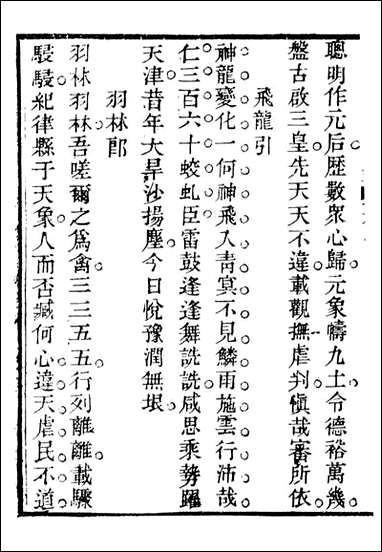 聰明作元后歷數衆心歸元象幬九土令德裕萬幾
盤古啟三皇先天天不違載觀撫虐判愼哉審所依
飛龍引
神龍變化一何神飛入靑冥不見鱗雨施雲行沛哉
仁三百六十蛟虬臣雷鼓逢逢舞詵詵咸思乘勢躍
天津昔年大旱沙揚塵今日悅豫潤無垠
羽林郎
羽林羽林吾嗟爾之爲禽三三五五行列離離載驟
駸駸紀律縣于天象人而否臧何心違天虐民不道